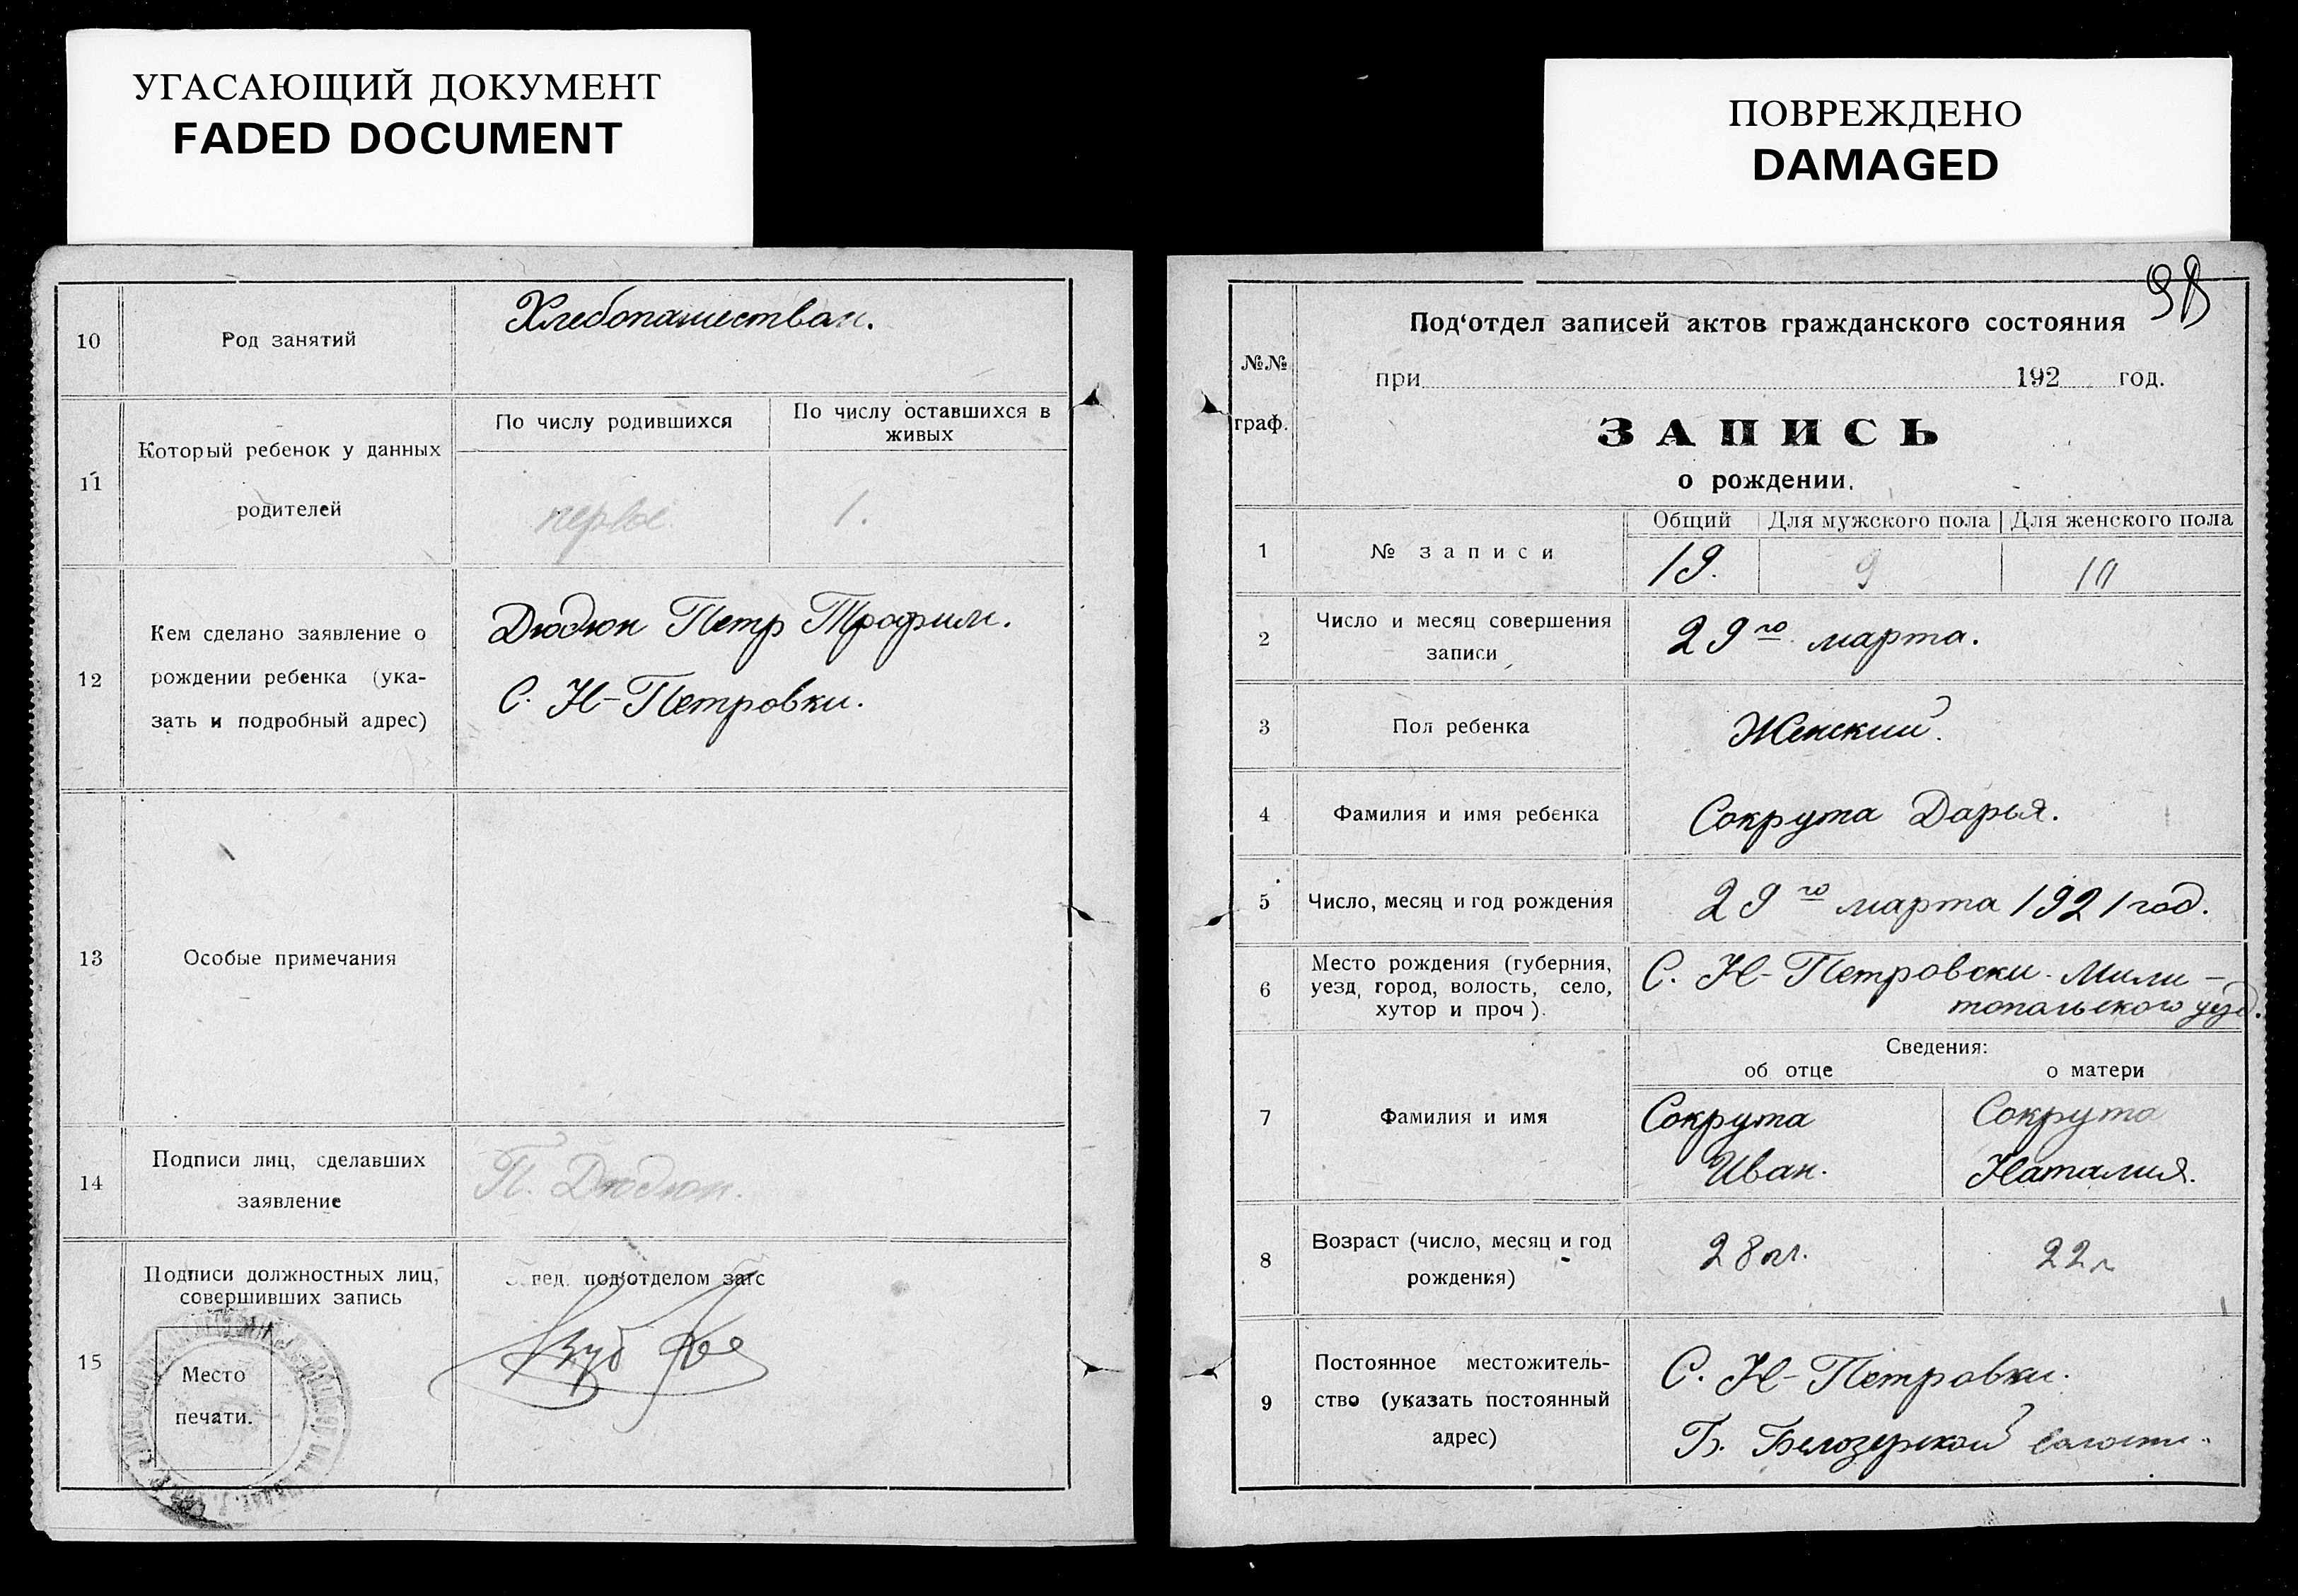 УГАСАЮЩИЙ ДОКУМЕНТ
FADED DOCUMENT
10
Род занятий
Хлебопашество
11
Который ребенок у данных
родителей
По числу родившихся
По числу оставшихся в
живых
первое
1.
12
Кем сделано заявление о
рождении ребенка (ука-
зать и подробный адрес)
Дюдюн Петр Трофим.
С. Н-Петровки.
13
Особые примечания
14
Подписи лиц, сделавших
заявление
П. Дюдюн.
15
Подписи должностных лиц,
совершивших запись
Место
печати.
под'отделом загс
ПОВРЕЖДЕНО
DAMAGED
98
№№
граф.
Под'отдел записей актов гражданского состояния
при 192 год.
ЗАПИСЬ
о рождении.
1
№ записи
Общий
Для мужского пола
Для женского пола
19.
9
10
2
Число и месяц совершения
записи
29го марта.
3
Пол ребенка
Женский.
4
Фамилия и имя ребенка
Сокрута Дарья.
5
Число, месяц и год рождения
29го марта 1921 год.
6
Место рождения (губерния,
уезд, город, волость, село,
хутор и проч).
С. Н-Петровски. Мили-
топольского уезд.
Сведения:
об отце
о матери
7
Фамилия и имя
Сокрута
Иван.
Сокрута
Наталия.
8
Возраст (число, месяц и год
рождения)
28 л.
22 л
9
Постоянное местожитель-
ство (указать постоянный
адрес)
С. Н-Петровки.
Б. Белозерской волости.